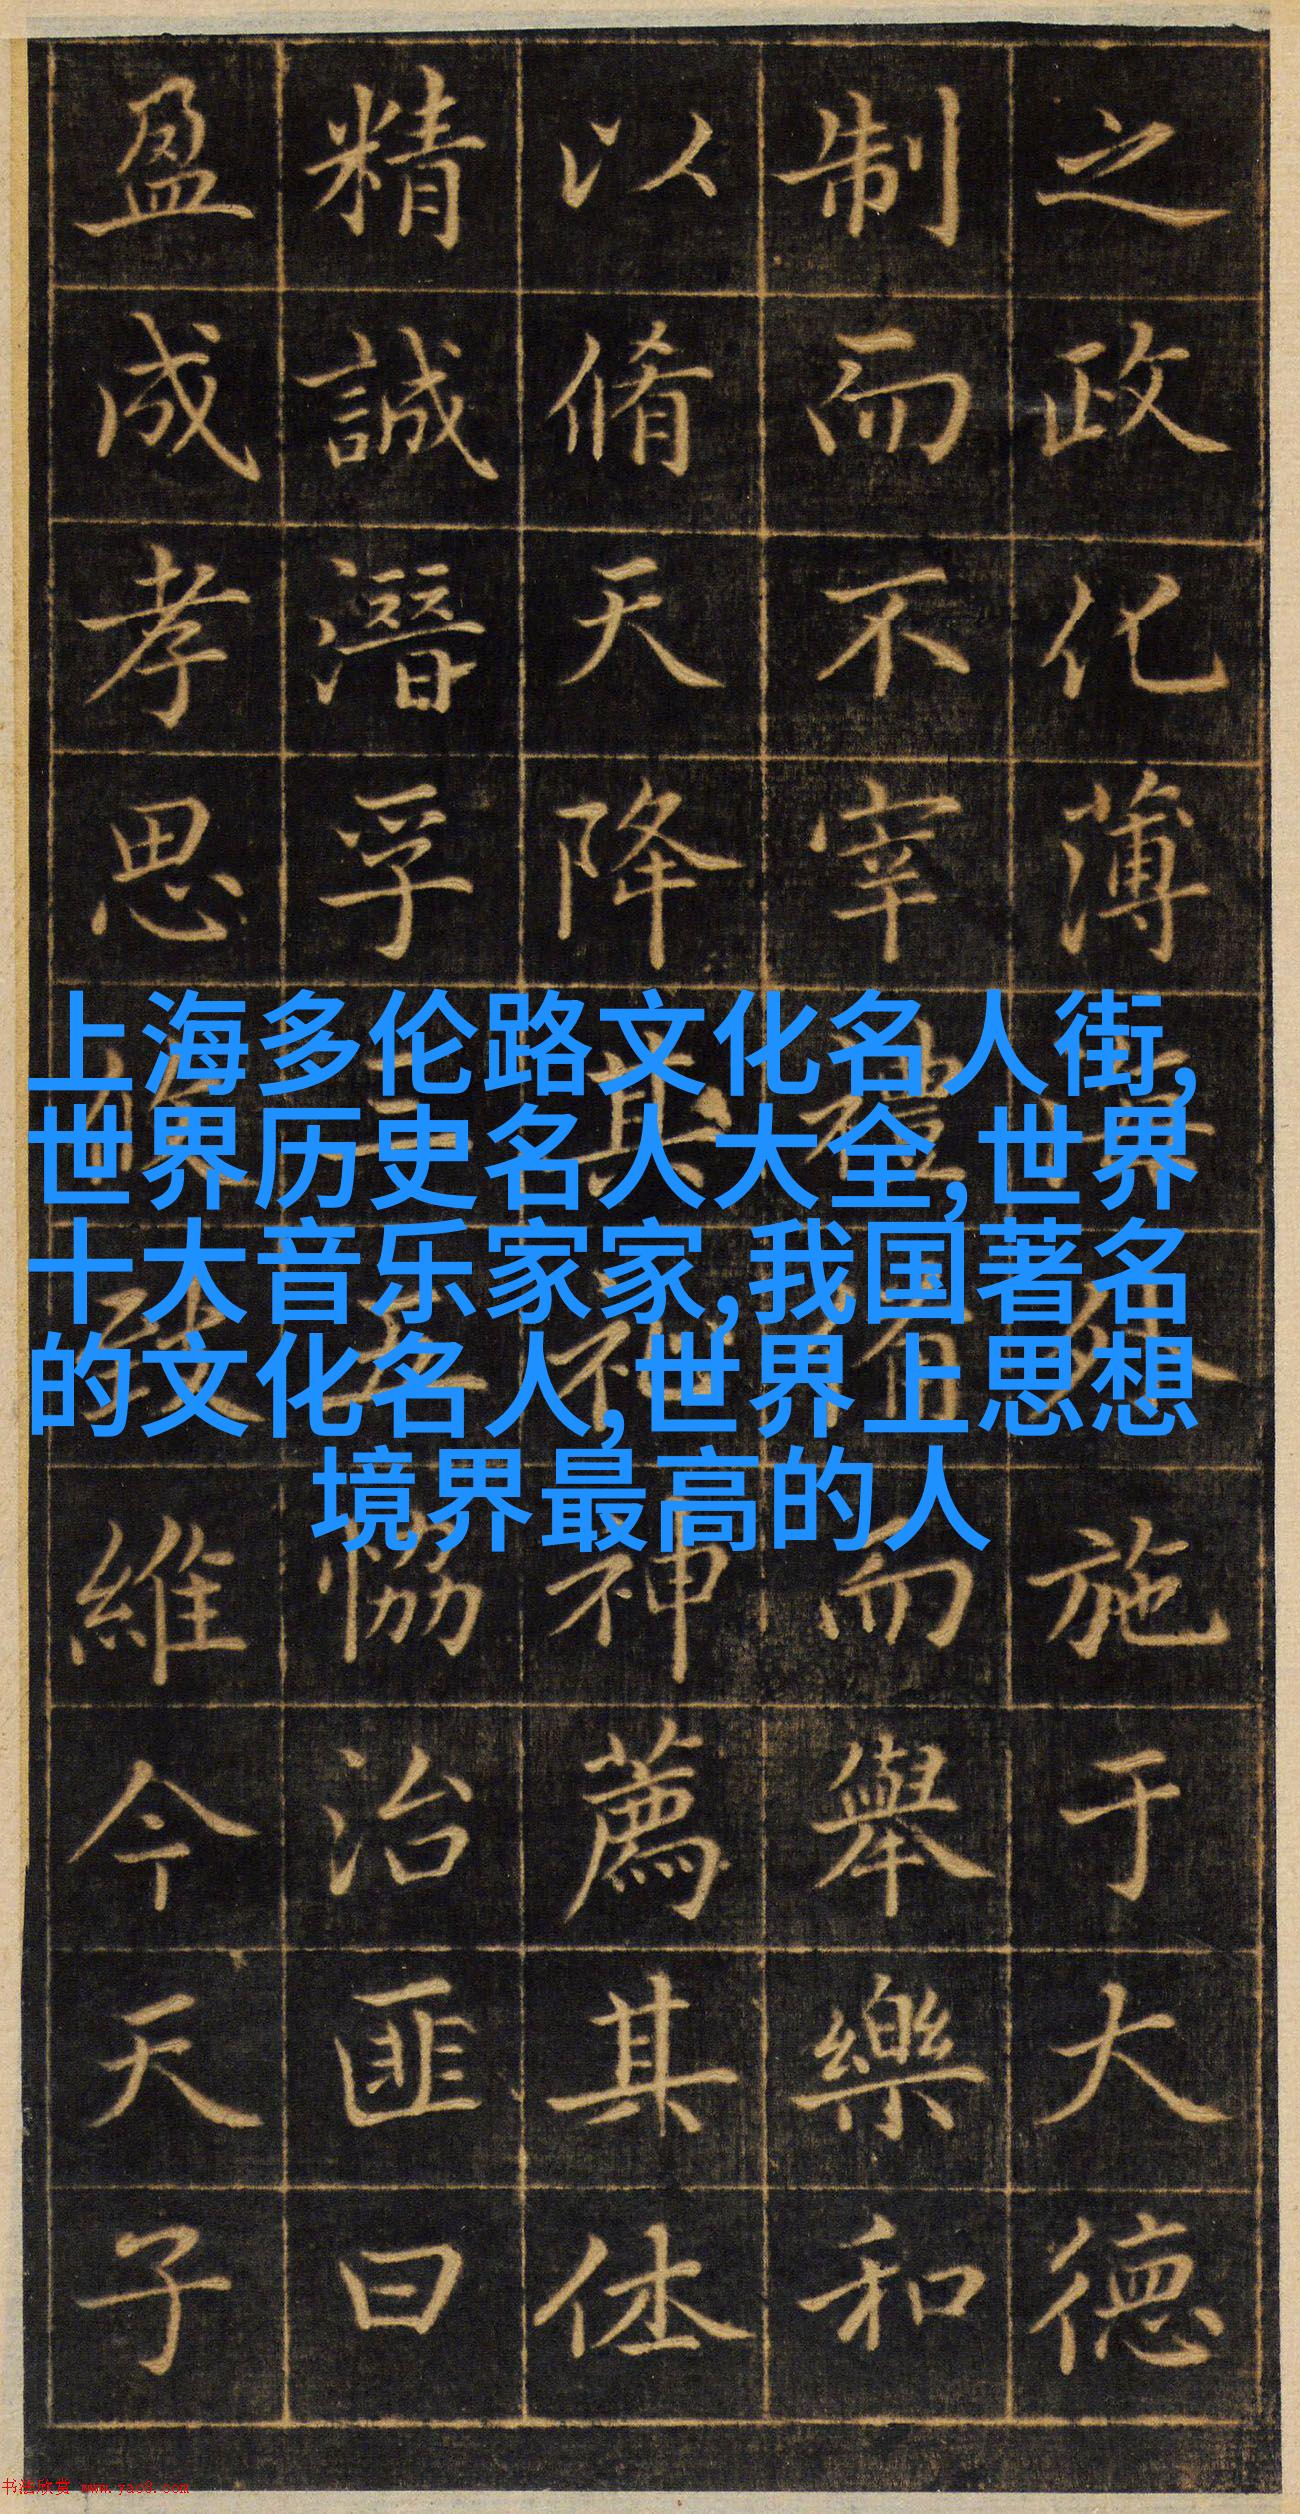 之政化薄施于大德
制而不宰禮而舉樂和
以脩天降其神薦其休
精誠潛孚恊治匪曰
盈成孝思致維今天子
上海多伦路文化名人街,
世界历史名人大全,世界
十大音乐家家,我国著名
的文化名人,世界上思想
境界最高的人
书法欣赏 www.yac8.com